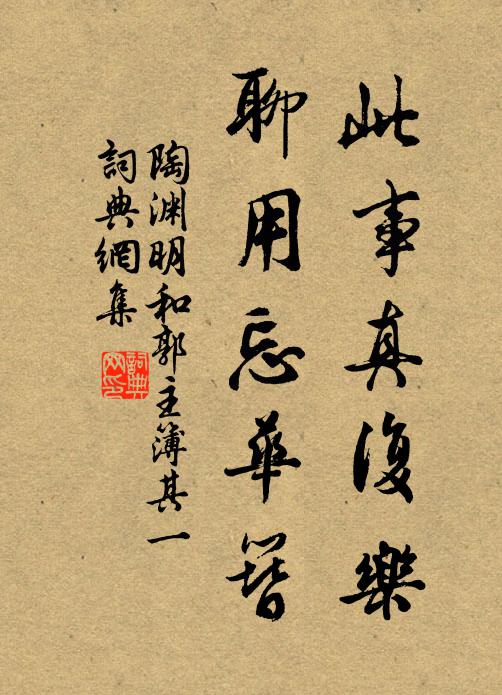 此事真復樂
聊用忘華簪
陶淵明和郭主簿其一
詞典網集
詞典
网印